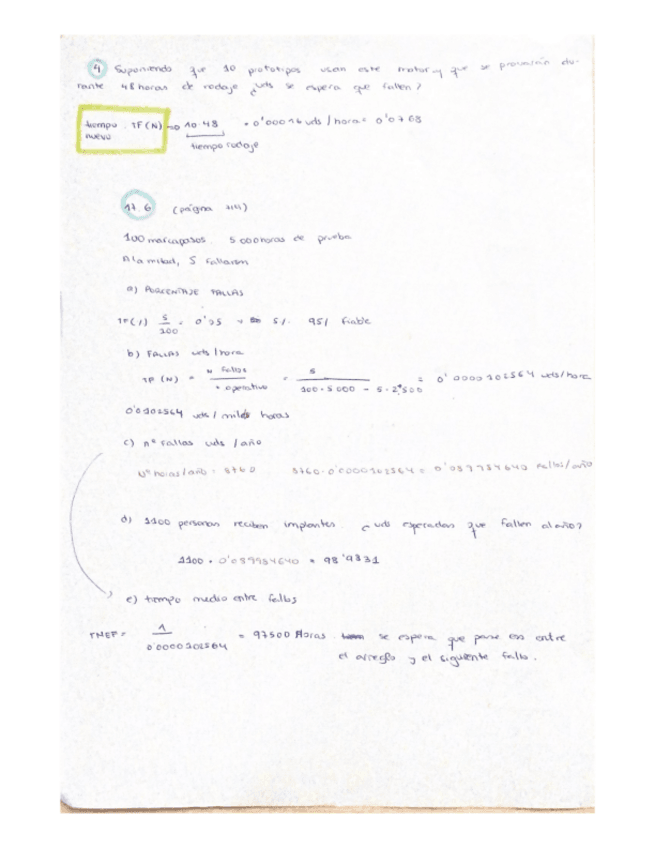 4 Suponiendo que 10 prototipos usan este motor y que se provarán du-
rante 48 horas de rodaje ¿uds se espera que fallen?
tiempo nuevo TF(N) => 10·48 · 0'00016 uds/hora = 0'0768
tiempo rodaje
17.6 (página
100 marcapasos. 5 000 horas de prueba
A la mitad, 5 fallaron
a) PORCENTAJE FALLAS
TF(%) 5/100 = 0'05 → 5%. 95% fiable
b) FALLAS uds/hora
TF (N) = N fallos / t operativo = 5 / 100·5000 - 5·2500 = 0'0000102564 uds/hora
0'0102564 uds/miles horas
c) nº fallas uds/año
Nº horas/año = 8760 8760·0'0000102564 = 0'089984640 fallos/año
d) 1100 personas reciben implantes. ¿uds esperadas que fallen al año?
1100 · 0'089984640 = 98'9831
e) tiempo medio entre fallos
TMEF = 1 / 0'0000102564 = 97500 Horas se espera que pase en entre
el arreglo y el siguiente fallo.